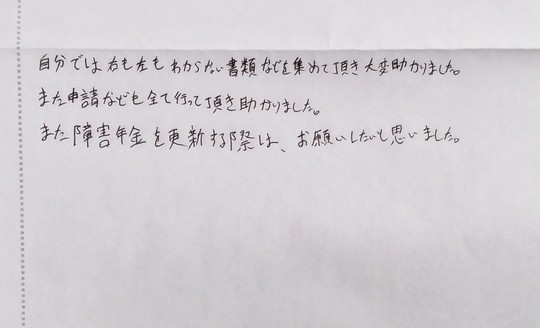 自分では右も左もわからない書類などを集めて頂き大変助かりました。
また申請なども全て行って頂き助かりました。
また障害年金を更新する際は、お願いしたいと思いました。